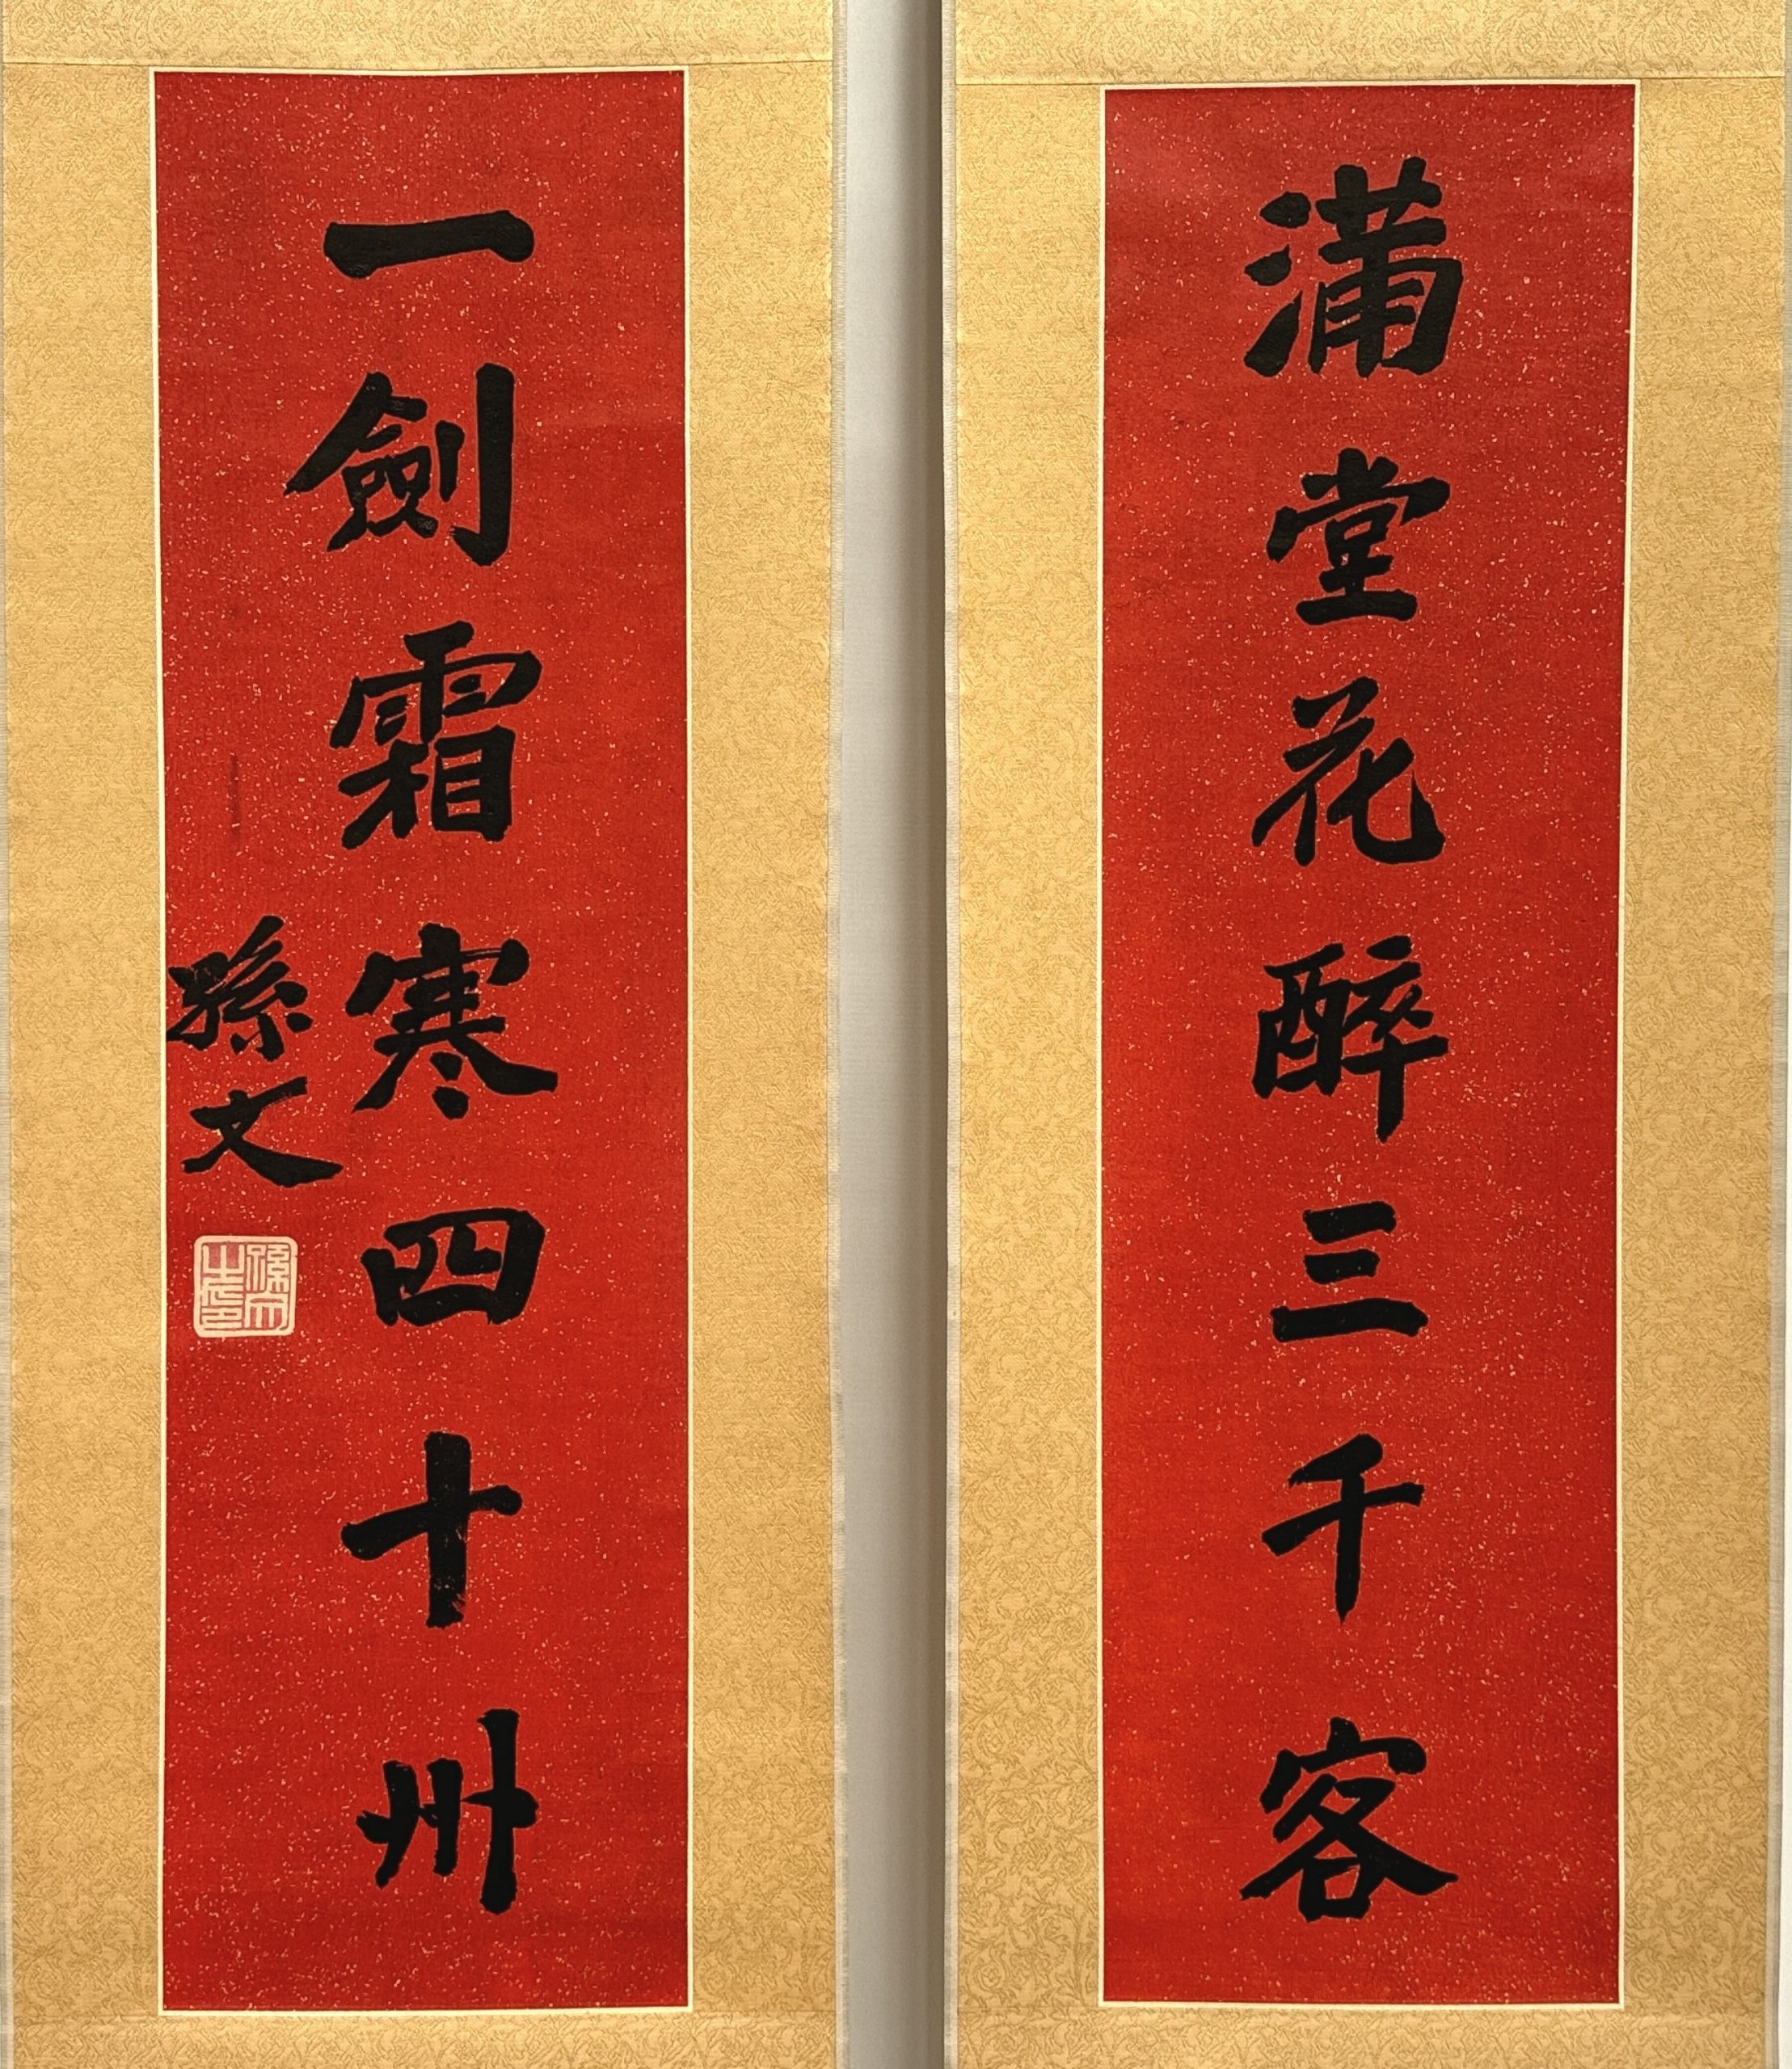 满堂花醉三千客
一劍霜寒四十州
孫文
孫文之印